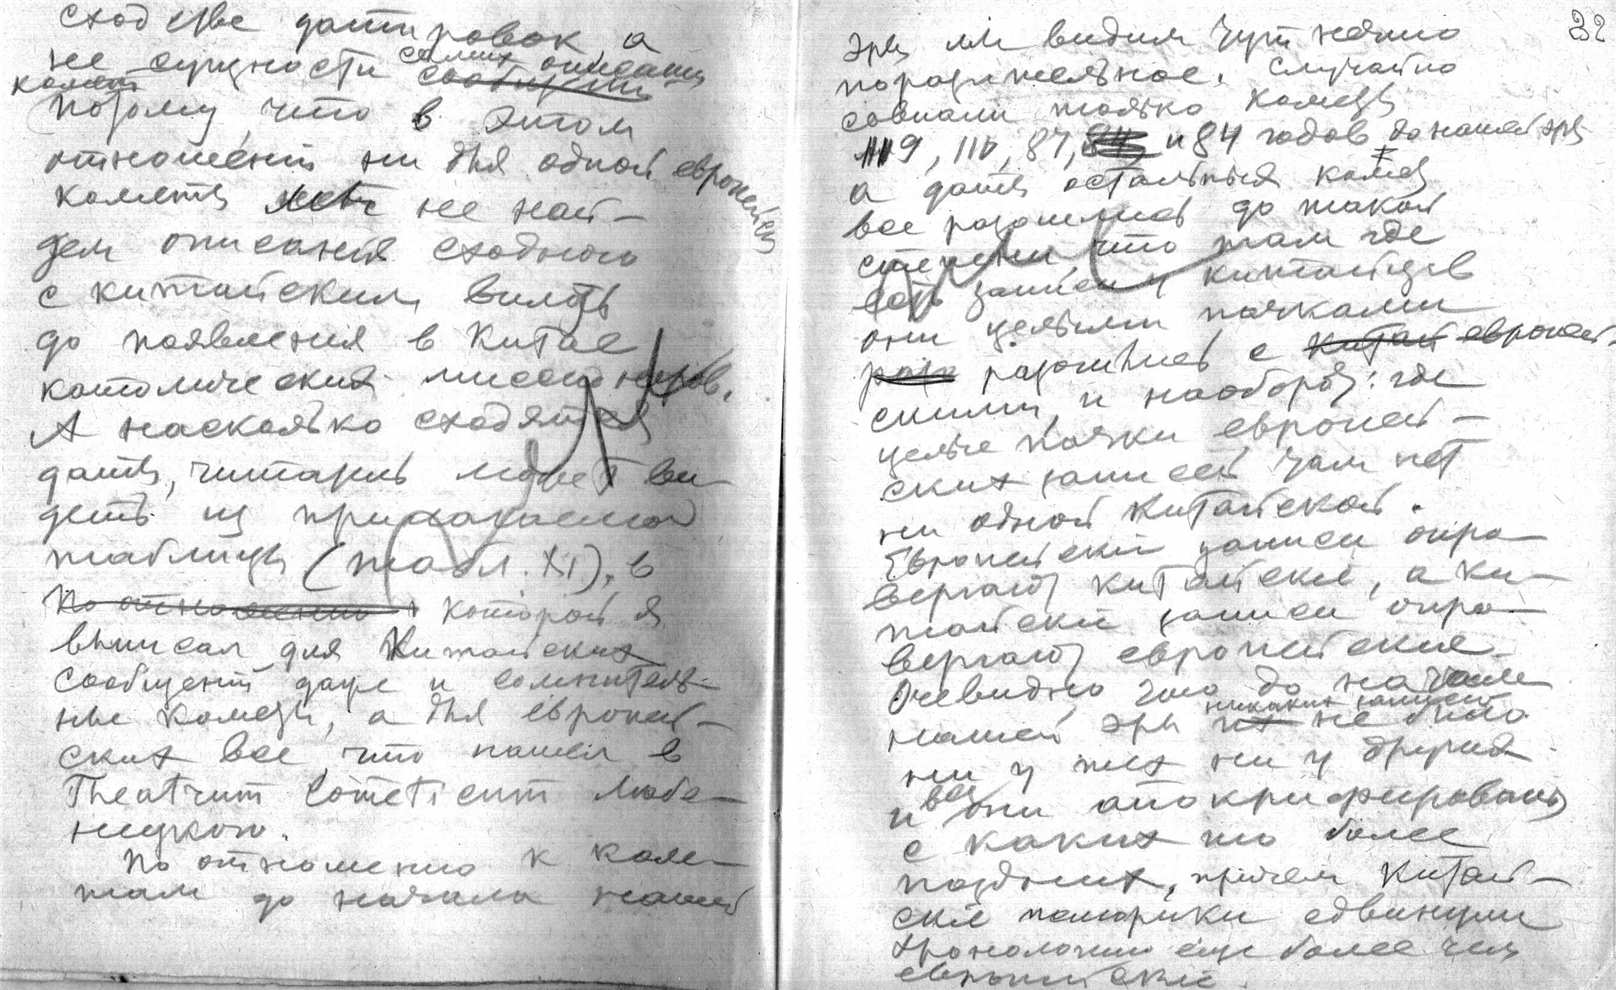 сходстве датировок, а
не сущности самих описаний
комет сообщений
потому, что в этом
отношении ни для одной европейской
кометы мы не най-
дем описания сходного
с китайским, вплоть
до появления в Китае
католических миссионеров.
А насколько сходятся
даты, читатель может ви-
деть из прилагаемой
таблицы (табл. XI), в
По отношению к которой я
выписал для Китайских
сообщений даже и сомнитель-
ные кометы, а для европей-
ских все, что нашел в
Theatrum Cometicum Любе-
ницкого.
По отношению к коме-
там до начала нашей
32
эры мы видим тут нечто
поразительное. Случайно
совпали только кометы
119, 110, 87, 84, и 84 годов до нашей эры
а даты остальных комет
все разошлись до такой
степени, что там где
есть записи у китайцев
они целыми пачками
разошлись с Китай европей-
скими, и наоборот: где
целые пачки европей-
ских записей там нет
ни одной Китайской.
Европейские записи опро-
вергают китайские, а ки-
тайские записи опро-
вергают европейские.
Очевидно, что до начала
нашей эры их никаких записей не было
ни у тех ни у других
и все они апокрифированы
с каких то более
поздних, причем Китай-
ские историки сдвинули
хронологию еще более чем
европейские.